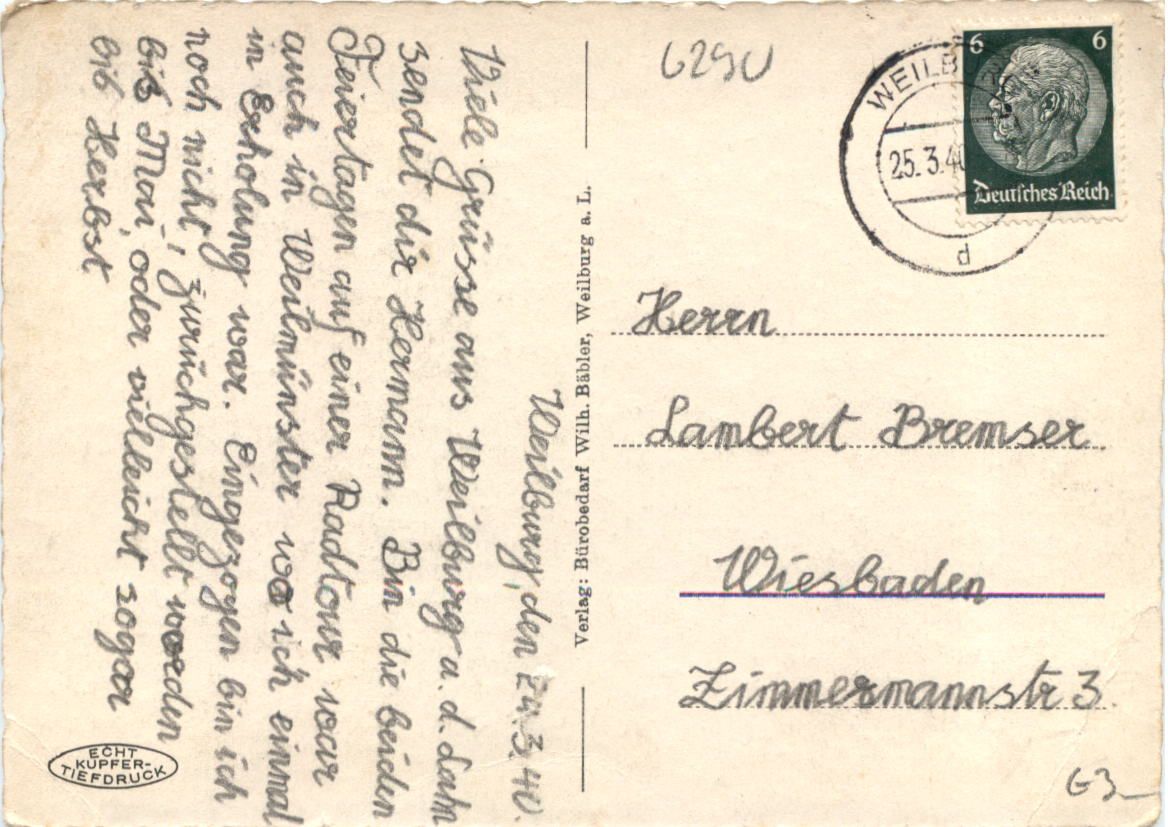 Weilburg, den 24.3.40.
Viele Grüsse aus Weilburg u. d. Lahn
sendet dir Hermann. Bin die beiden
Feiertagen auf einer Radtour war
auch in Weilmünster wo ich einmal
in Erholung war. Eingezogen bin ich
noch nicht, zurüchgestellt worden
bis Mai, oder vielleicht sogar
bis Herbst
ECHT
KUPFER-
TIEFDRUCK
Verlag: Bürobedarf Wilh. Bäbler, Weilburg a. L.
6290
WEILB
25.3.40
d
6 6
Deutsches Reich
Herrn
Lambert Bremser
Wiesbaden
Zimmermannstr 3.